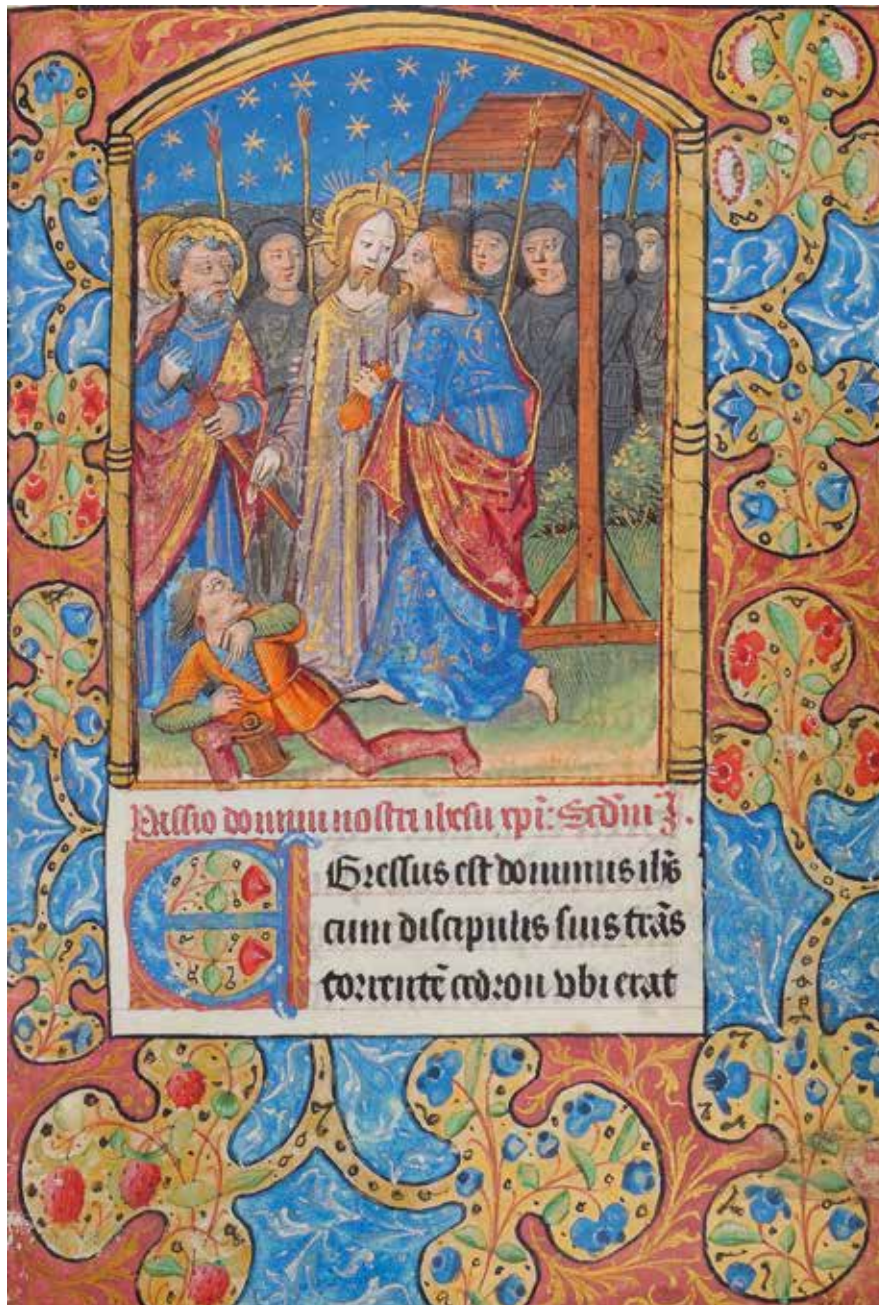 Passio domini nostri ihesu xpi: Scdm J.
EGressus est dominus ihs
cum discipulis suis trãs
torrentẽ cedron vbi erat